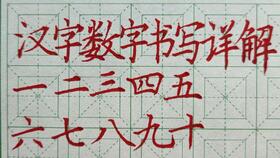 汉字数字书写详解
一二三四五
六七八九十